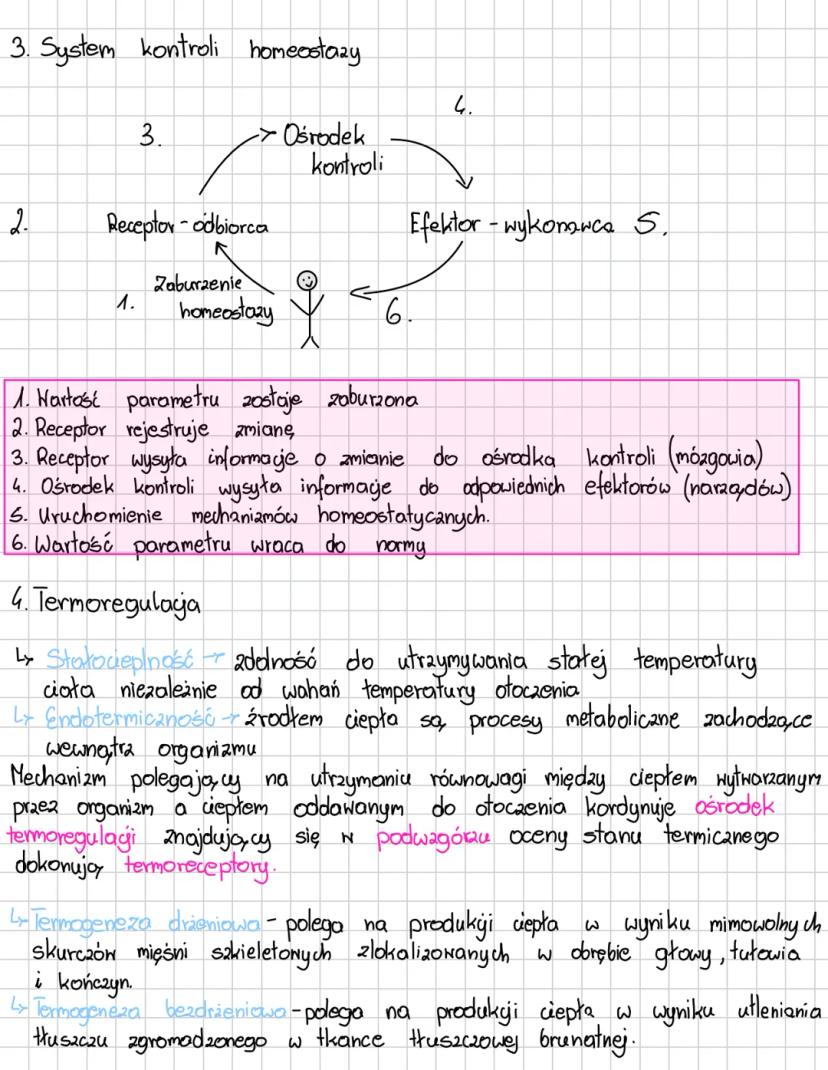 3. System kontroli homeostazy
4.
3. Ośrodek
kontroli
2. Receptor - odbiorca Efektor - wykonawca 5.
Zaburzenie
1. homeostazy 6.
1. Wartość parametru zostaje zaburzona
2. Receptor rejestruje zmianę
3. Receptor wysyła informacje o zmianie do ośrodka kontroli (mózgowia)
4. Ośrodek kontroli wysyła informacje do odpowiednich efektorów (narządów)
5. Uruchomienie mechanizmów homeostatycznych.
6. Wartość parametru wraca do normy
4. Termoregulacja
↳ Stałocieplność → zdolność do utrzymywania stałej temperatury
ciała niezależnie od wahań temperatury otoczenia
↳ Endotermiczność → źródłem ciepła są procesy metaboliczne zachodzące
wewnątrz organizmu
Mechanizm polegający na utrzymaniu równowagi między ciepłem wytwarzanym
przez organizm a ciepłem oddawanym do otoczenia kordynuje ośrodek
termoregulacji znajdujący się w podwzgórzu oceny stanu termicznego
dokonują termoreceptory.
↳ Termogeneza drżeniowa - polega na produkcji ciepła w wyniku mimowolnych
skurczów mięśni szkieletowych zlokalizowanych w obrębie głowy, tułowia
i kończyn.
↳ Termogeneza bezdrżeniowa - polega na produkcji ciepła w wyniku utleniania
tłuszczu zgromadzonego w tkance tłuszczowej brunatnej.